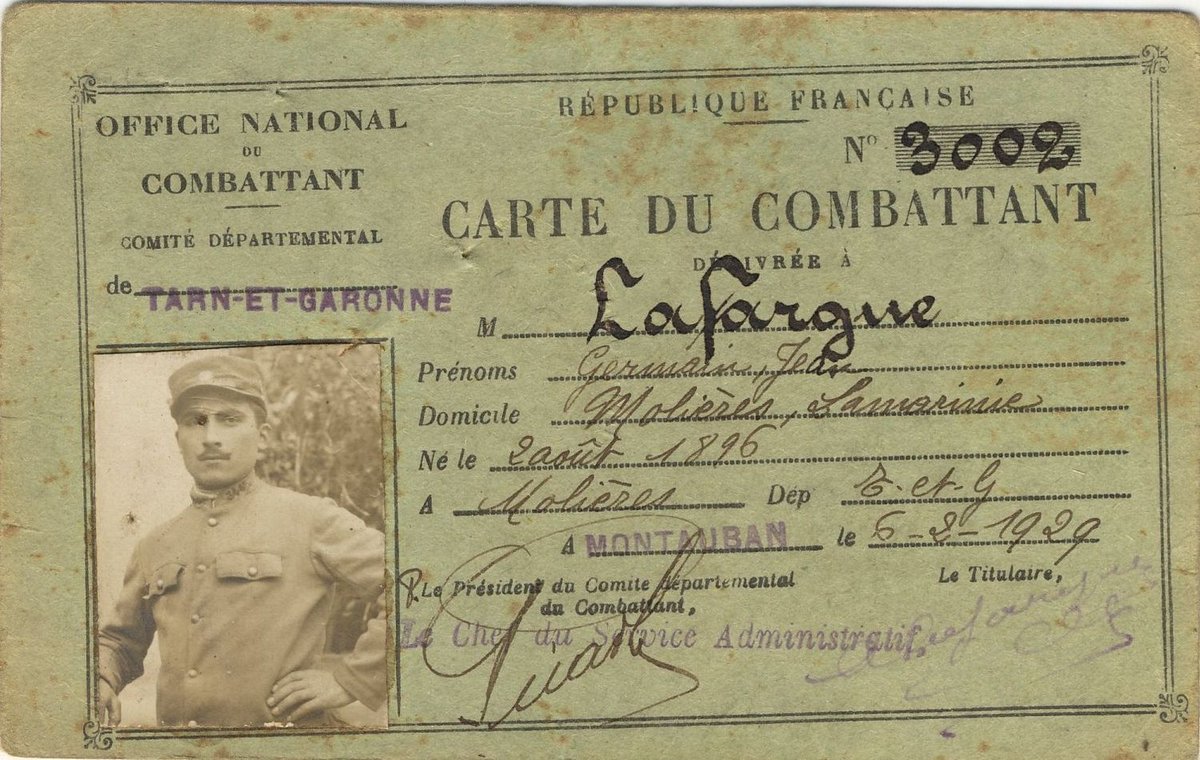 OFFICE NATIONAL
DU
COMBATTANT
COMITÉ DÉPARTEMENTAL
de TARN-ET-GARONNE
RÉPUBLIQUE FRANÇAISE
N° 3002
CARTE DU COMBATTANT
DÉLIVRÉE À
M Lafargue
Prénoms Germain, Jean
Domicile Molières, Lamarinie
Né le 2 août 1896
A Molières Dép T-et-G
A MONTAUBAN le 6-2-1929
P. Le Président du Comité départemental
du Combattant,
Le Titulaire,
Le Chef du Service Administratif,